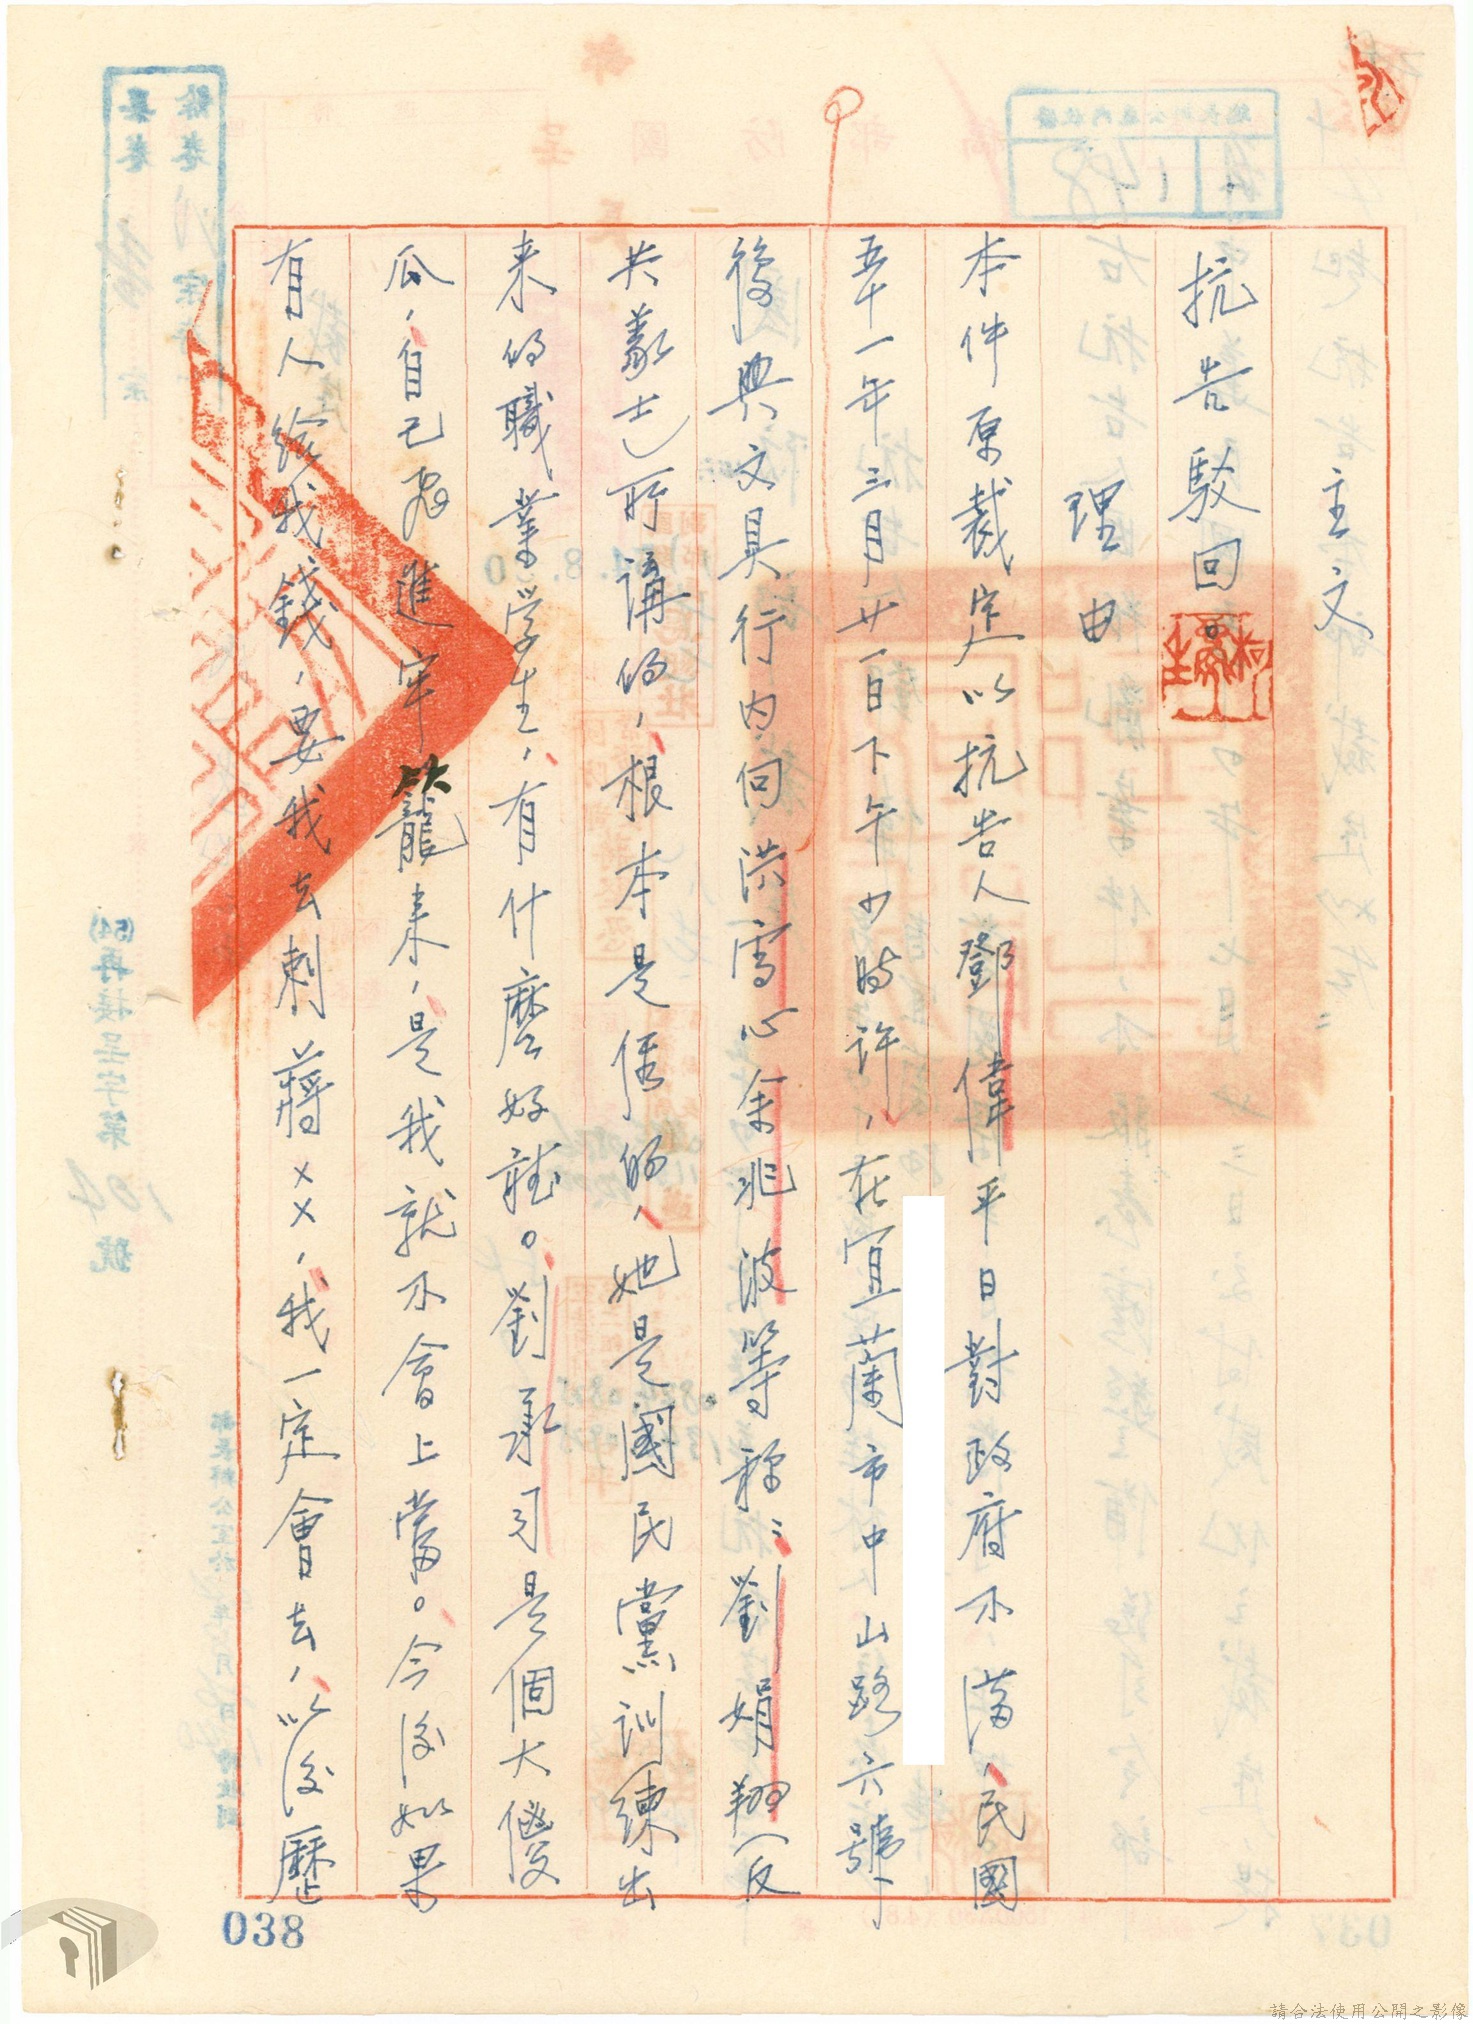 主文
抗告駁回。
理由
本件原裁定以抗告人鄧偉平日對政府不滿，民國
五十一年三月廿一日下午 時許，在宜蘭市中山路六號
後興文具行內向洪雪心余兆波等稱：劉娟翔（反
共義士）所講的，根本是 的，她是國民黨訓練出
來的職業學生，有什麼好 。劉承司是個大傻
瓜，自己 進牢籠來，是我就不會上當。今後如果
有人給我錢，要我去刺蔣××，我一定會去，以後歷
038
請合法使用公開之影像